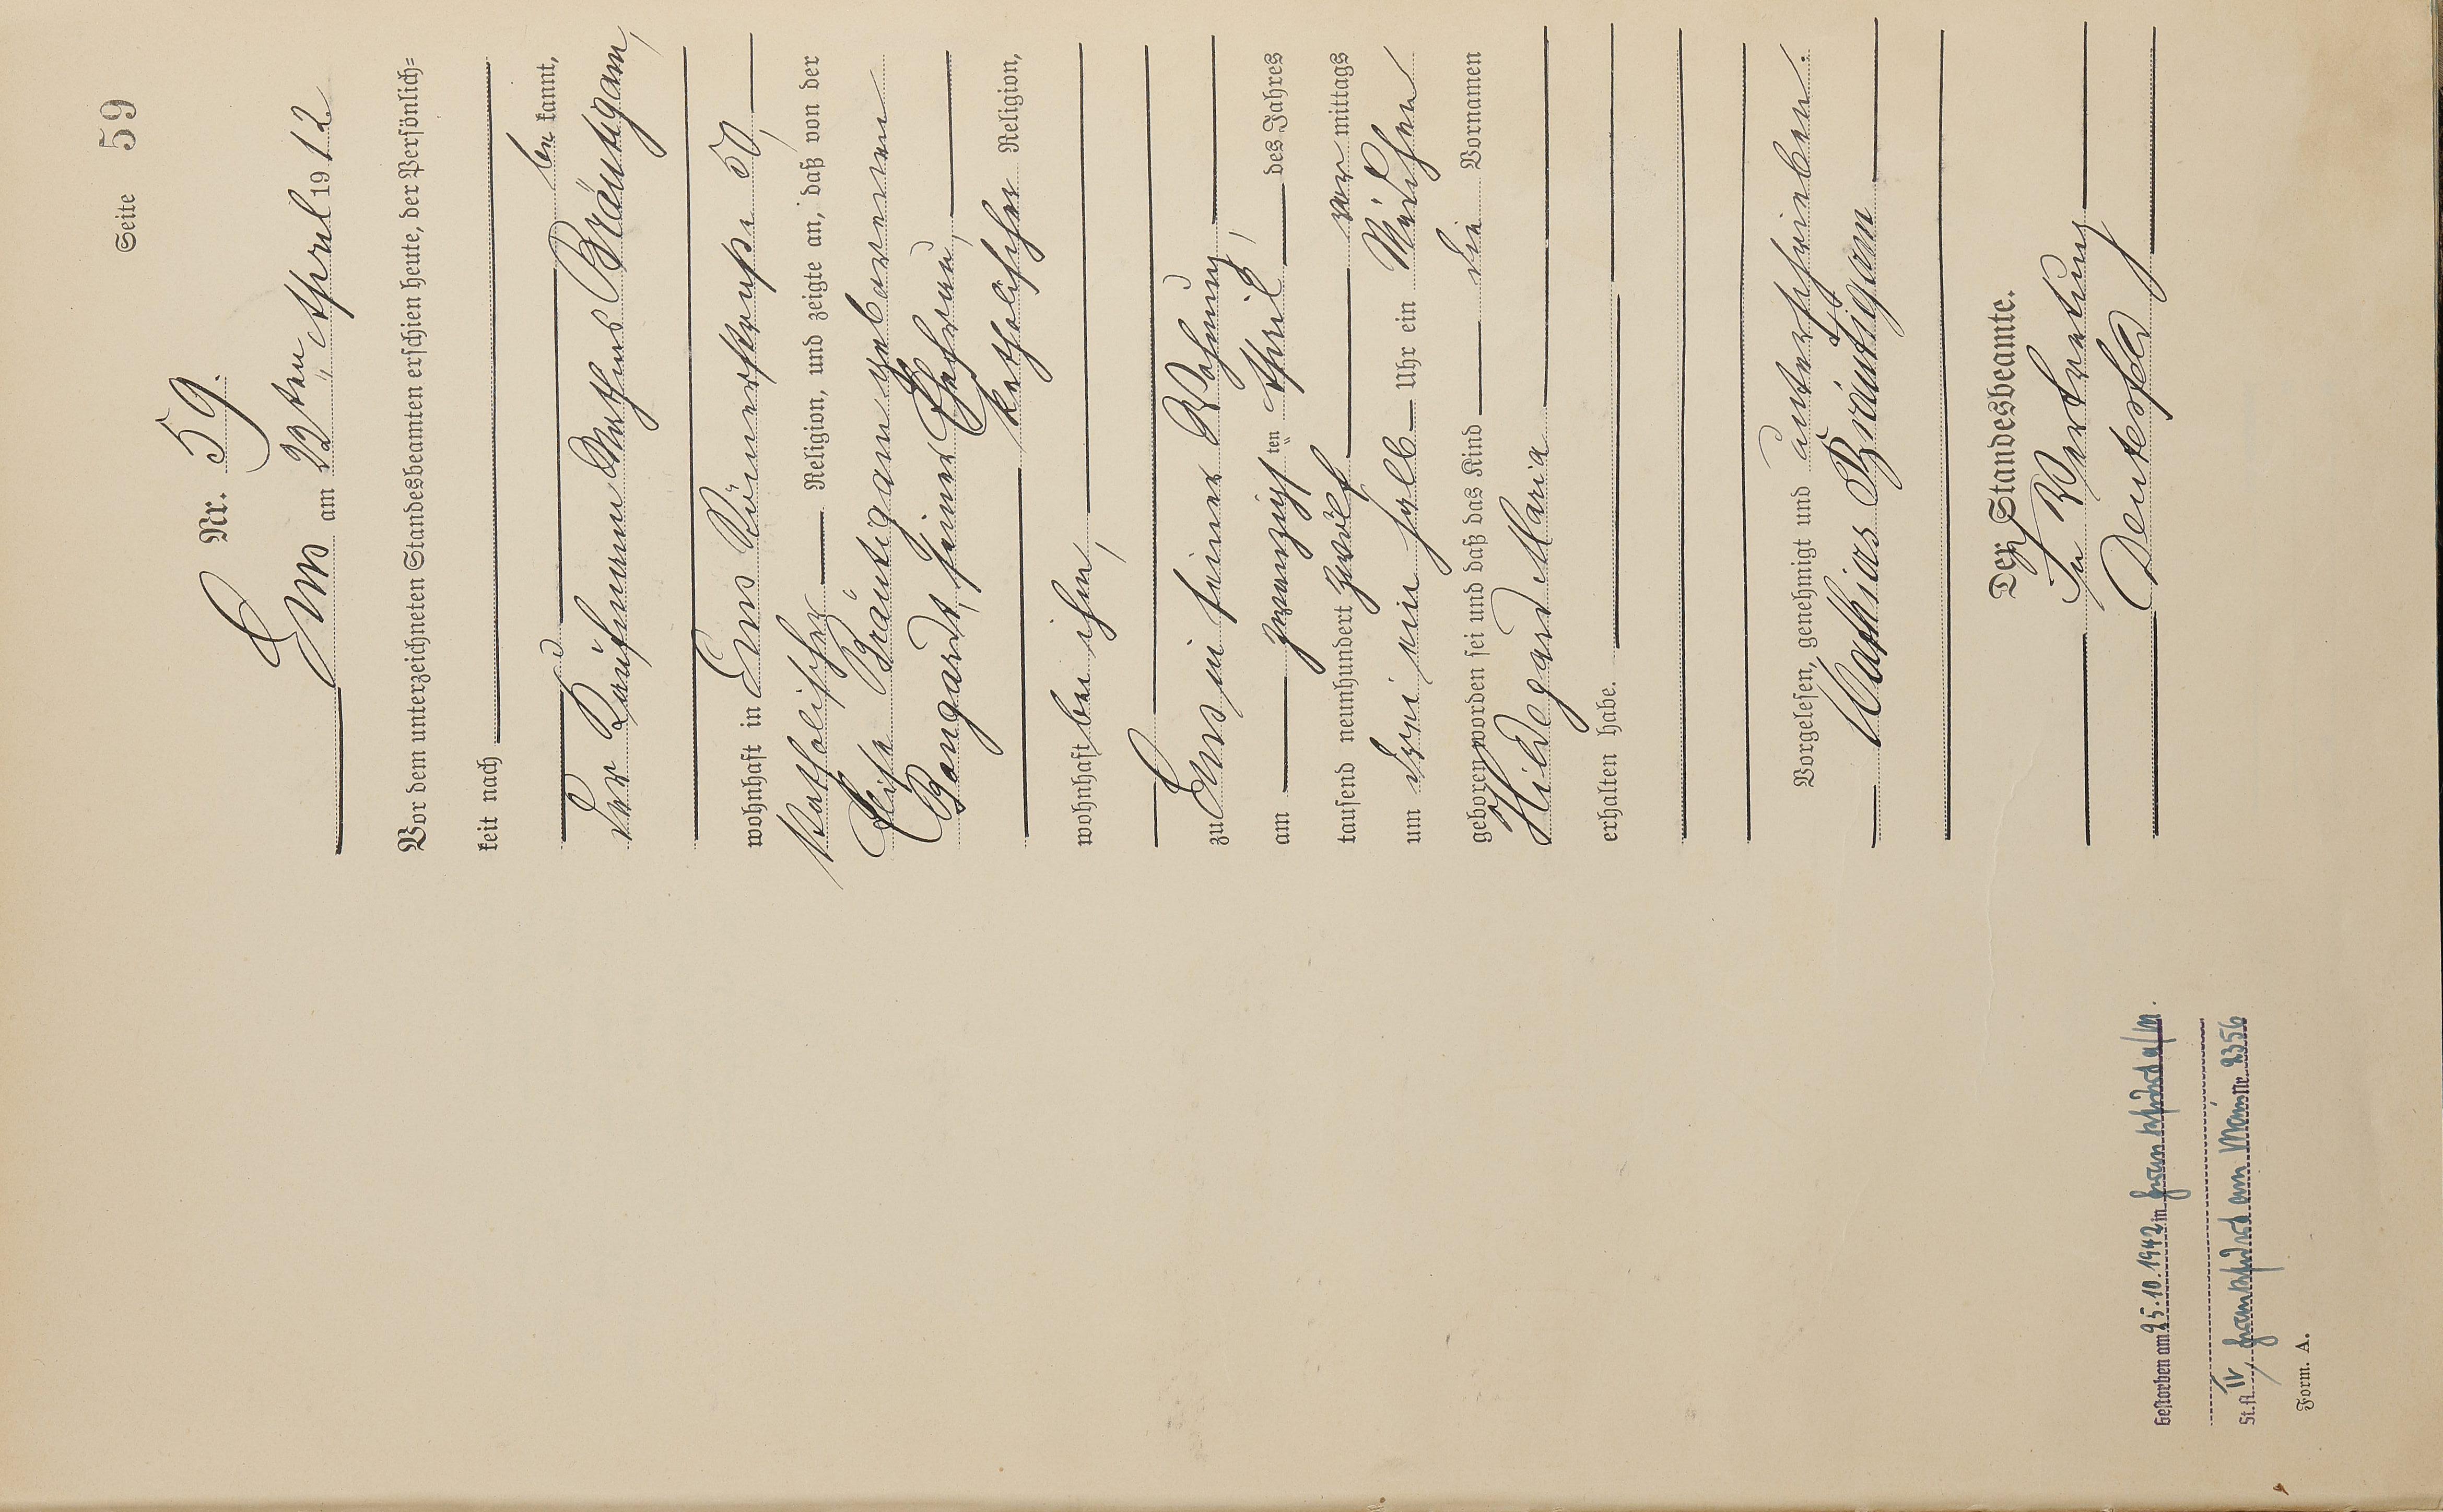 Seite 59
Nr. 59.
Ems am 22ten April 1912
Vor dem unterzeichneten Standesbeamten erschien heute, der Persönlich=
keit nach
be kannt,
der Kaufmann Mathias Bräutigam,
wohnhaft in Ems Römerstraße 50,
katholischer Religion, und zeigte an, daß von der
Elise Bräutigam geborenen
Bongardt, seiner Ehefrau,
katholischer Religion,
wohnhaft bei ihm,
zu Ems in seiner Wohnung,
am zwanzigsten April des Jahres
tausend neunhundert zwölf vor mittags
um drei ein halb Uhr ein Mädchen
geboren worden sei und daß das Kind die Vornamen
Hildegard Maria
erhalten habe.
Vorgelesen, genehmigt und unterschrieben.
Mathias Bräutigam
Der Standesbeamte.
In Vertretung
Deutesfeld
Gestorben am 25.10.1942 in Frankfurt a/M.
St.A. IV, Frankfurt am Main Nr. 2356
Form. A.